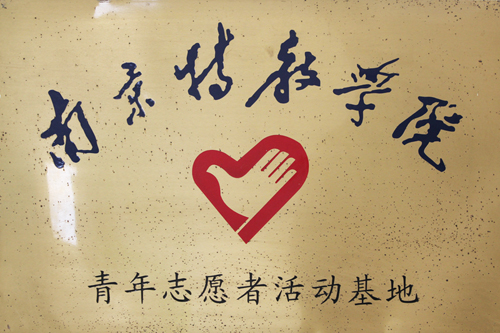 南京特教学院
青年志愿者活动基地